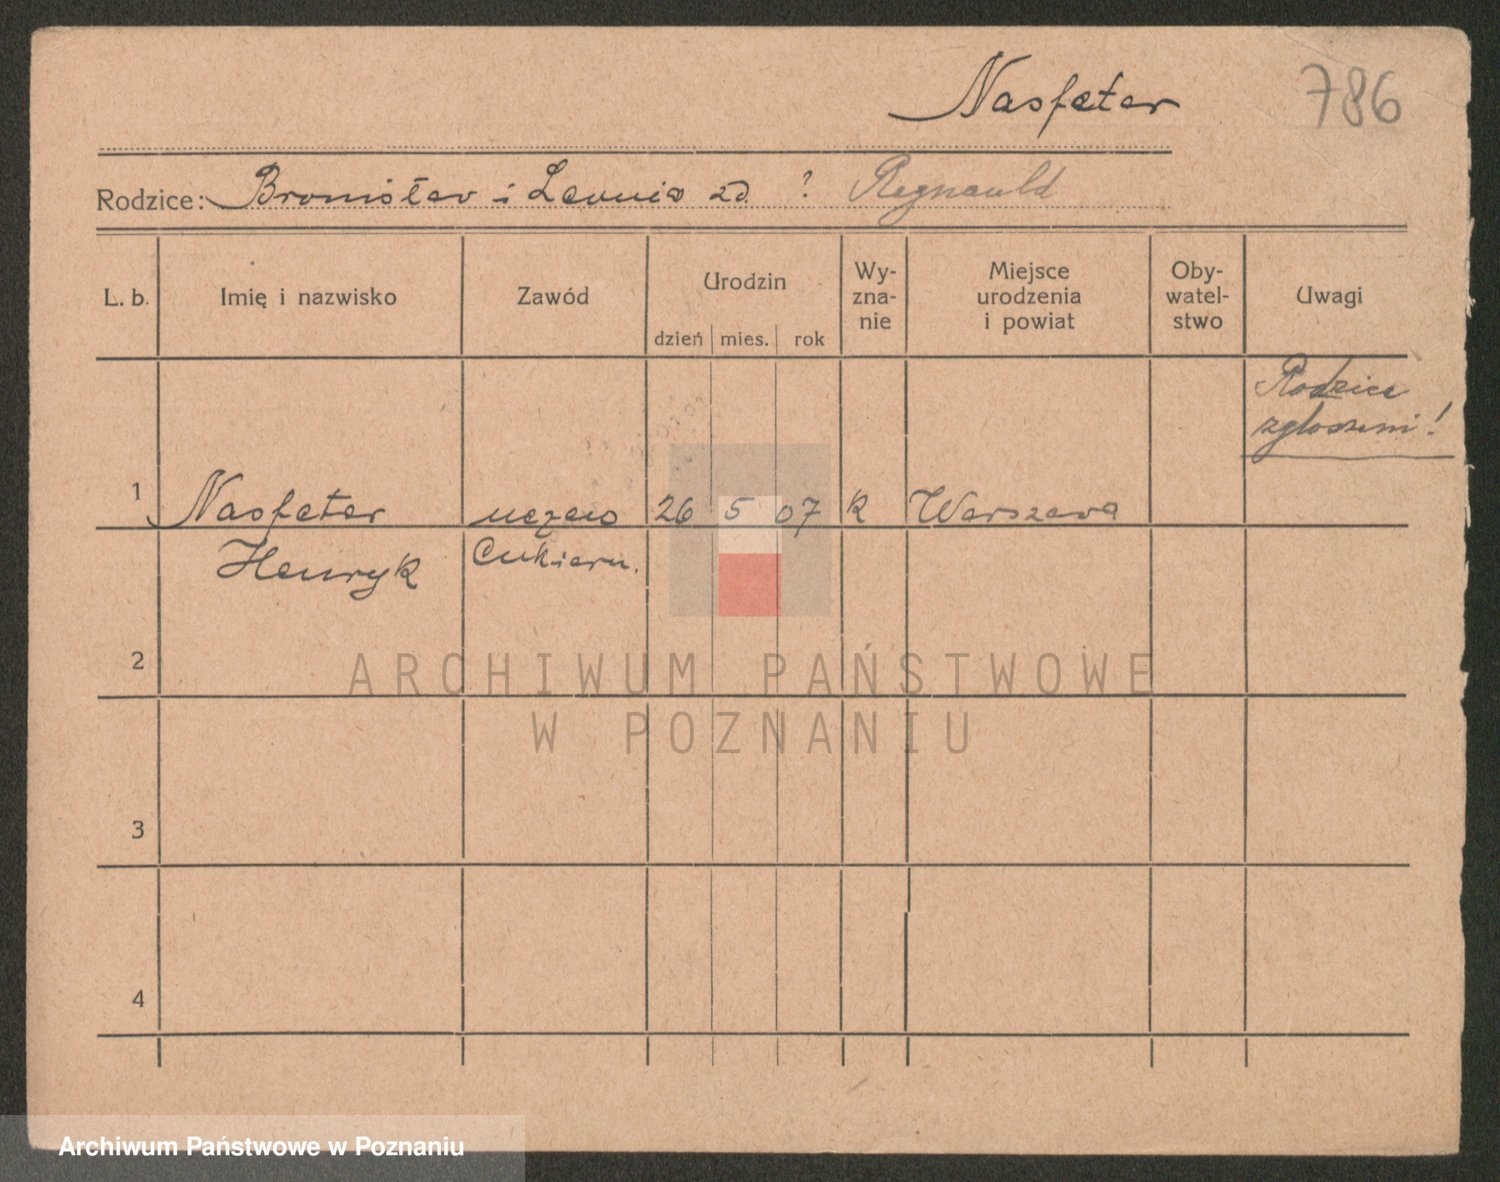 Nasfeter 786
Rodzice: Bronisław i Leonia zd. ? Regnauld
L. b. Imię i nazwisko Zawód Urodzin Wy-zna-nie Miejsce urodzenia i powiat Oby-watel-stwo Uwagi
dzień mies. rok
Rodzice
zgłoszeni!
1 Nasfeter uczeń 26 5 07 k Warszawa
Henryk Cukiern.
2
ARCHIWUM PAŃSTWOWE
W POZNANIU
3
4
Archiwum Państwowe w Poznaniu